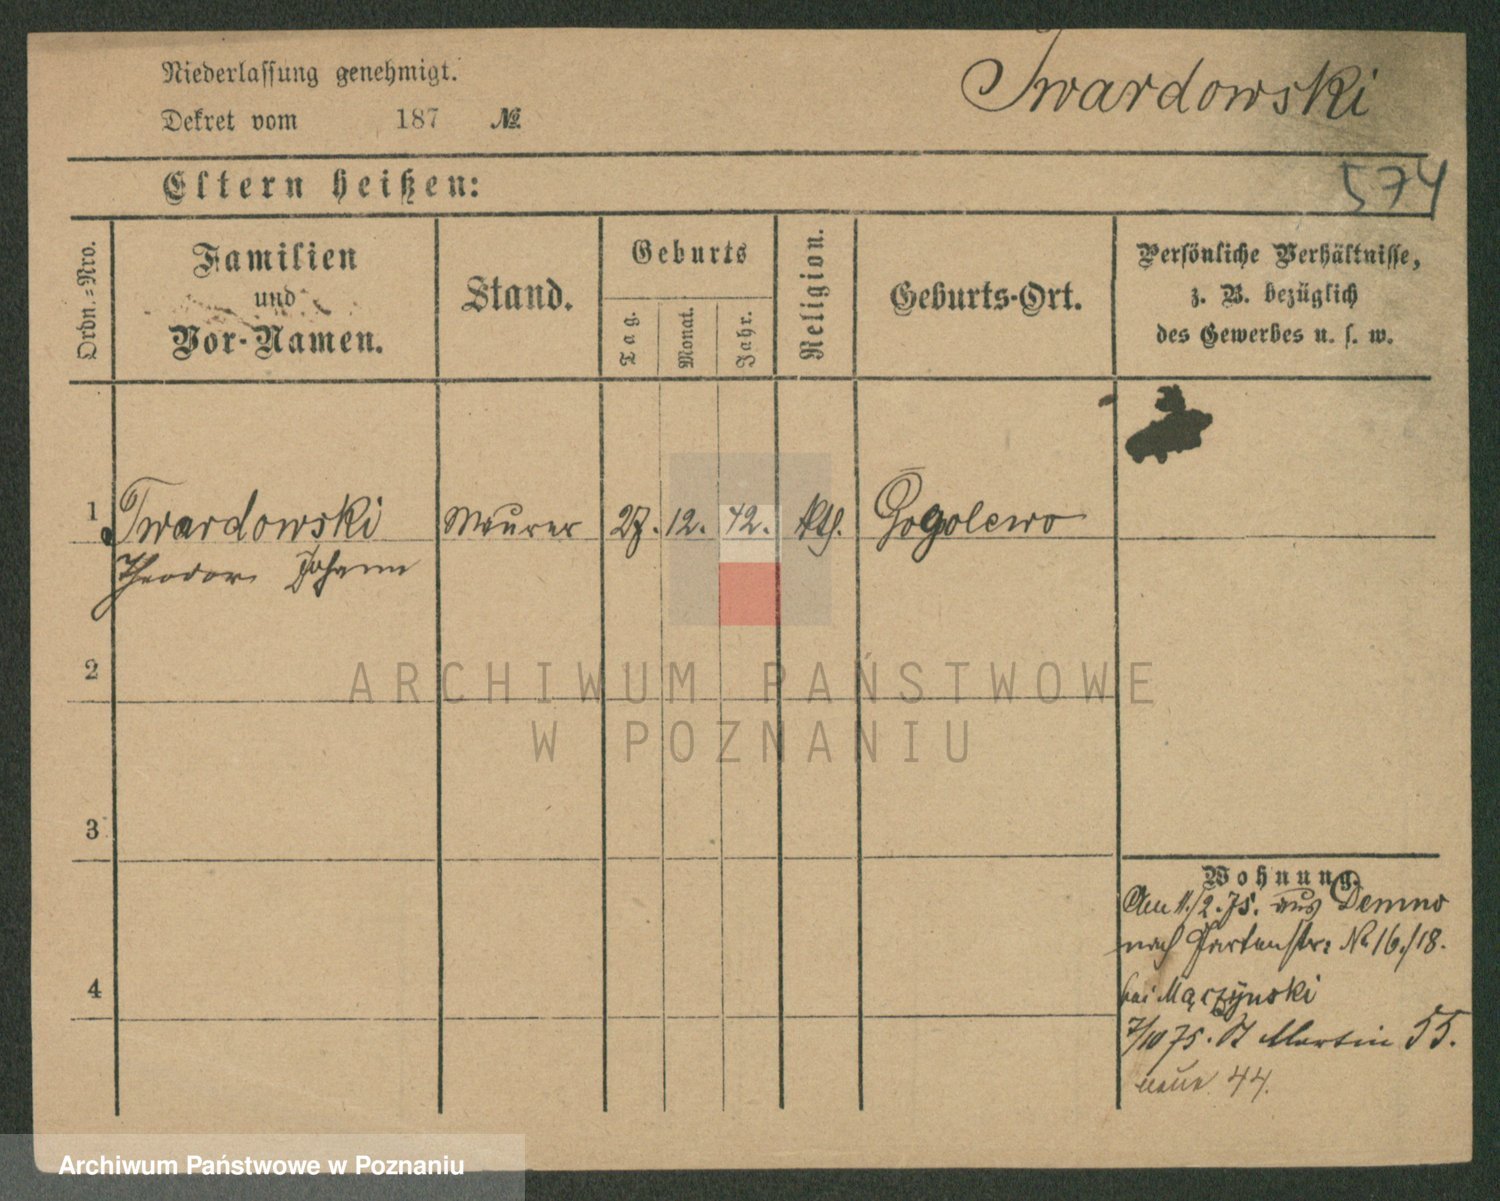 Niederlassung genehmigt.
Dekret vom 187 №
Twardowski
574
Eltern heißen:
Ordn.=Nro.
Familien
und
Vor-Namen.
Stand.
Geburts
Tag.
Monat.
Jahr.
Religion.
Geburts-Ort.
Persönliche Verhältnisse,
z. B. bezüglich
des Gewerbes u. s. w.
1 Twardowski Maurer 27. 12. 42. kth. Gogolewo
Theodor Johann
2
3
4
Wohnung.
Am 11./2. 75. aus Demno
nach Gartenstr: No 16./18.
bei Mączÿnski
7/10 75. St Martin 55.
neue 44.
ARCHIWUM PAŃSTWOWE
W POZNANIU
Archiwum Państwowe w Poznaniu